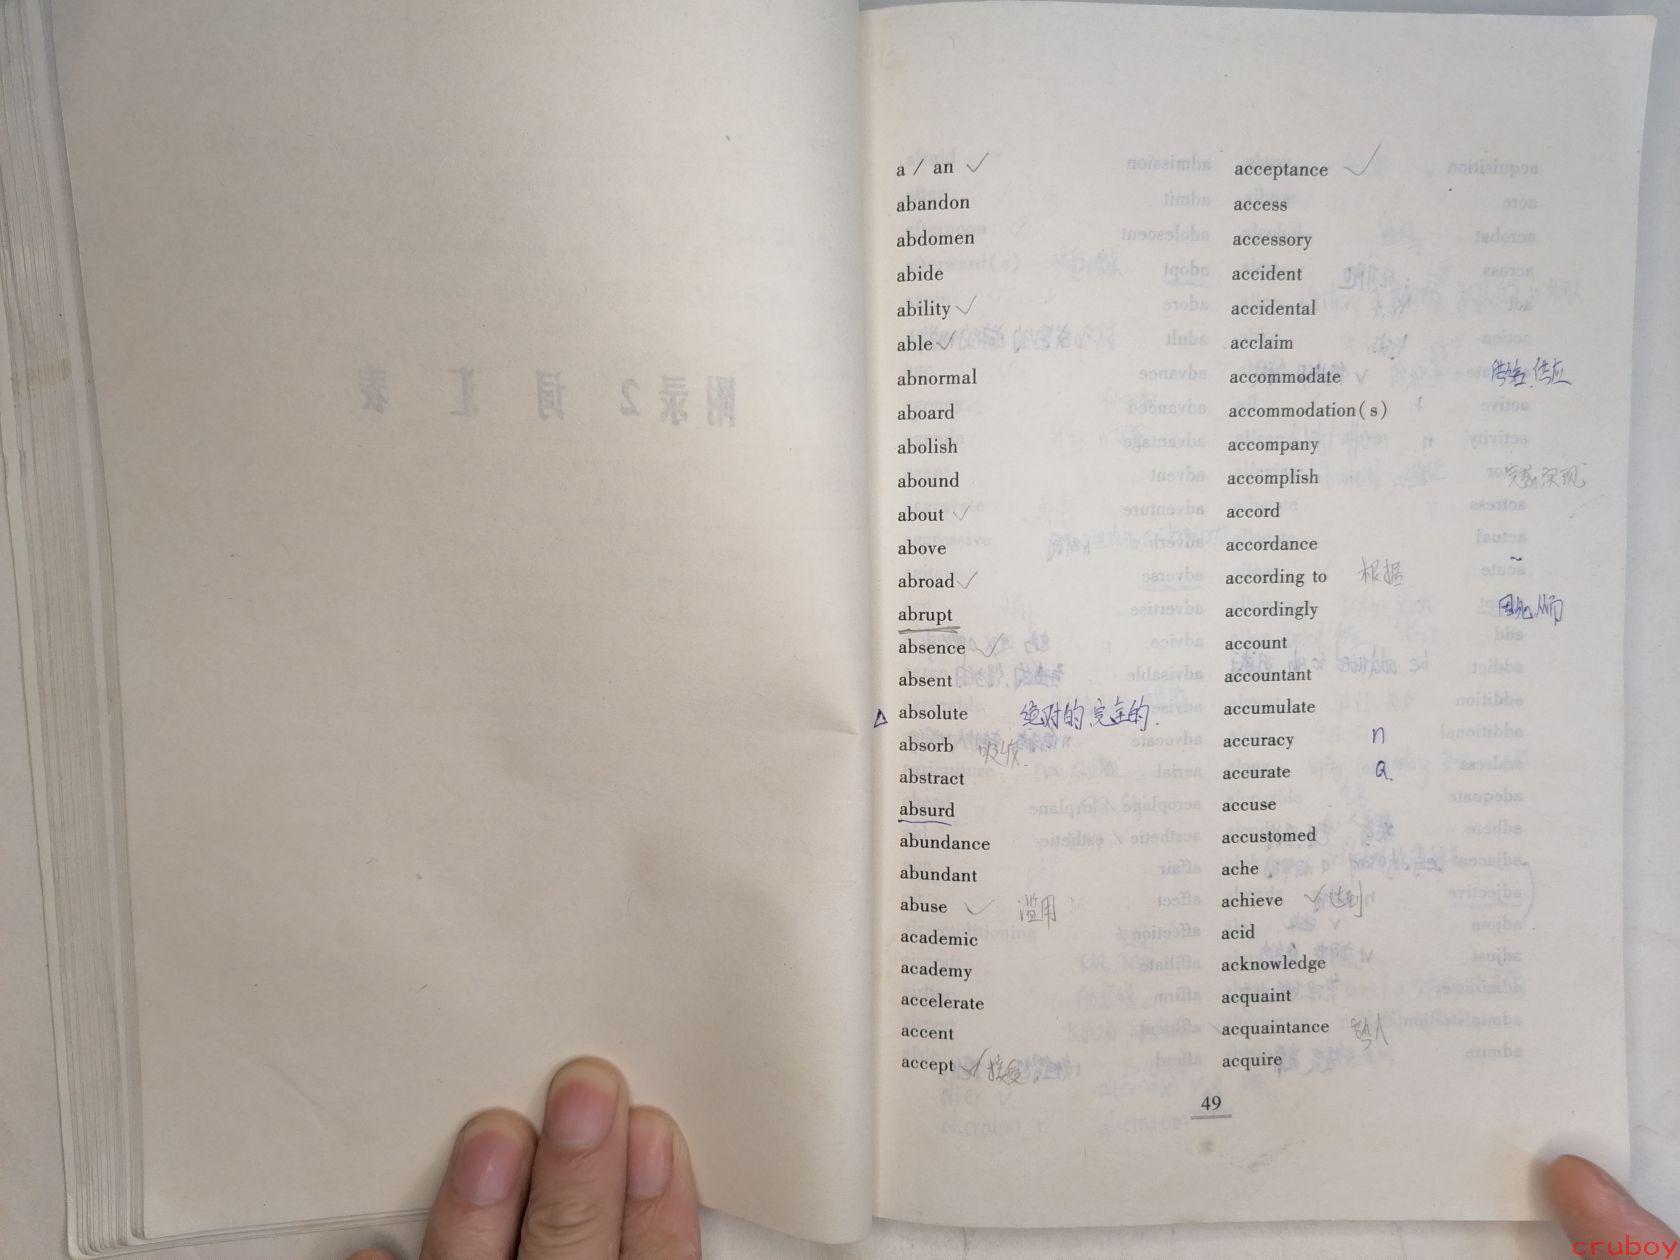 a / an
abandon
abdomen
abide
ability
able
abnormal
aboard
abolish
abound
about
above
abroad
abrupt
absence
absent
absolute 绝对的 完全的.
absorb 吸收.
abstract
absurd
abundance
abundant
abuse 滥用
academic
academy
accelerate
accent
accept 接受.
acceptance
access
accessory
accident
accidental
acclaim
accommodate 供给.供应
accommodation(s)
accompany
accomplish 完成实现
accord
accordance
according to 根据
accordingly 因此,从而
account
accountant
accumulate
accuracy n
accurate a.
accuse
accustomed
ache
achieve 达到
acid
acknowledge
acquaint
acquaintance 熟人
acquire
49
附录2 词 汇 表
cruboy